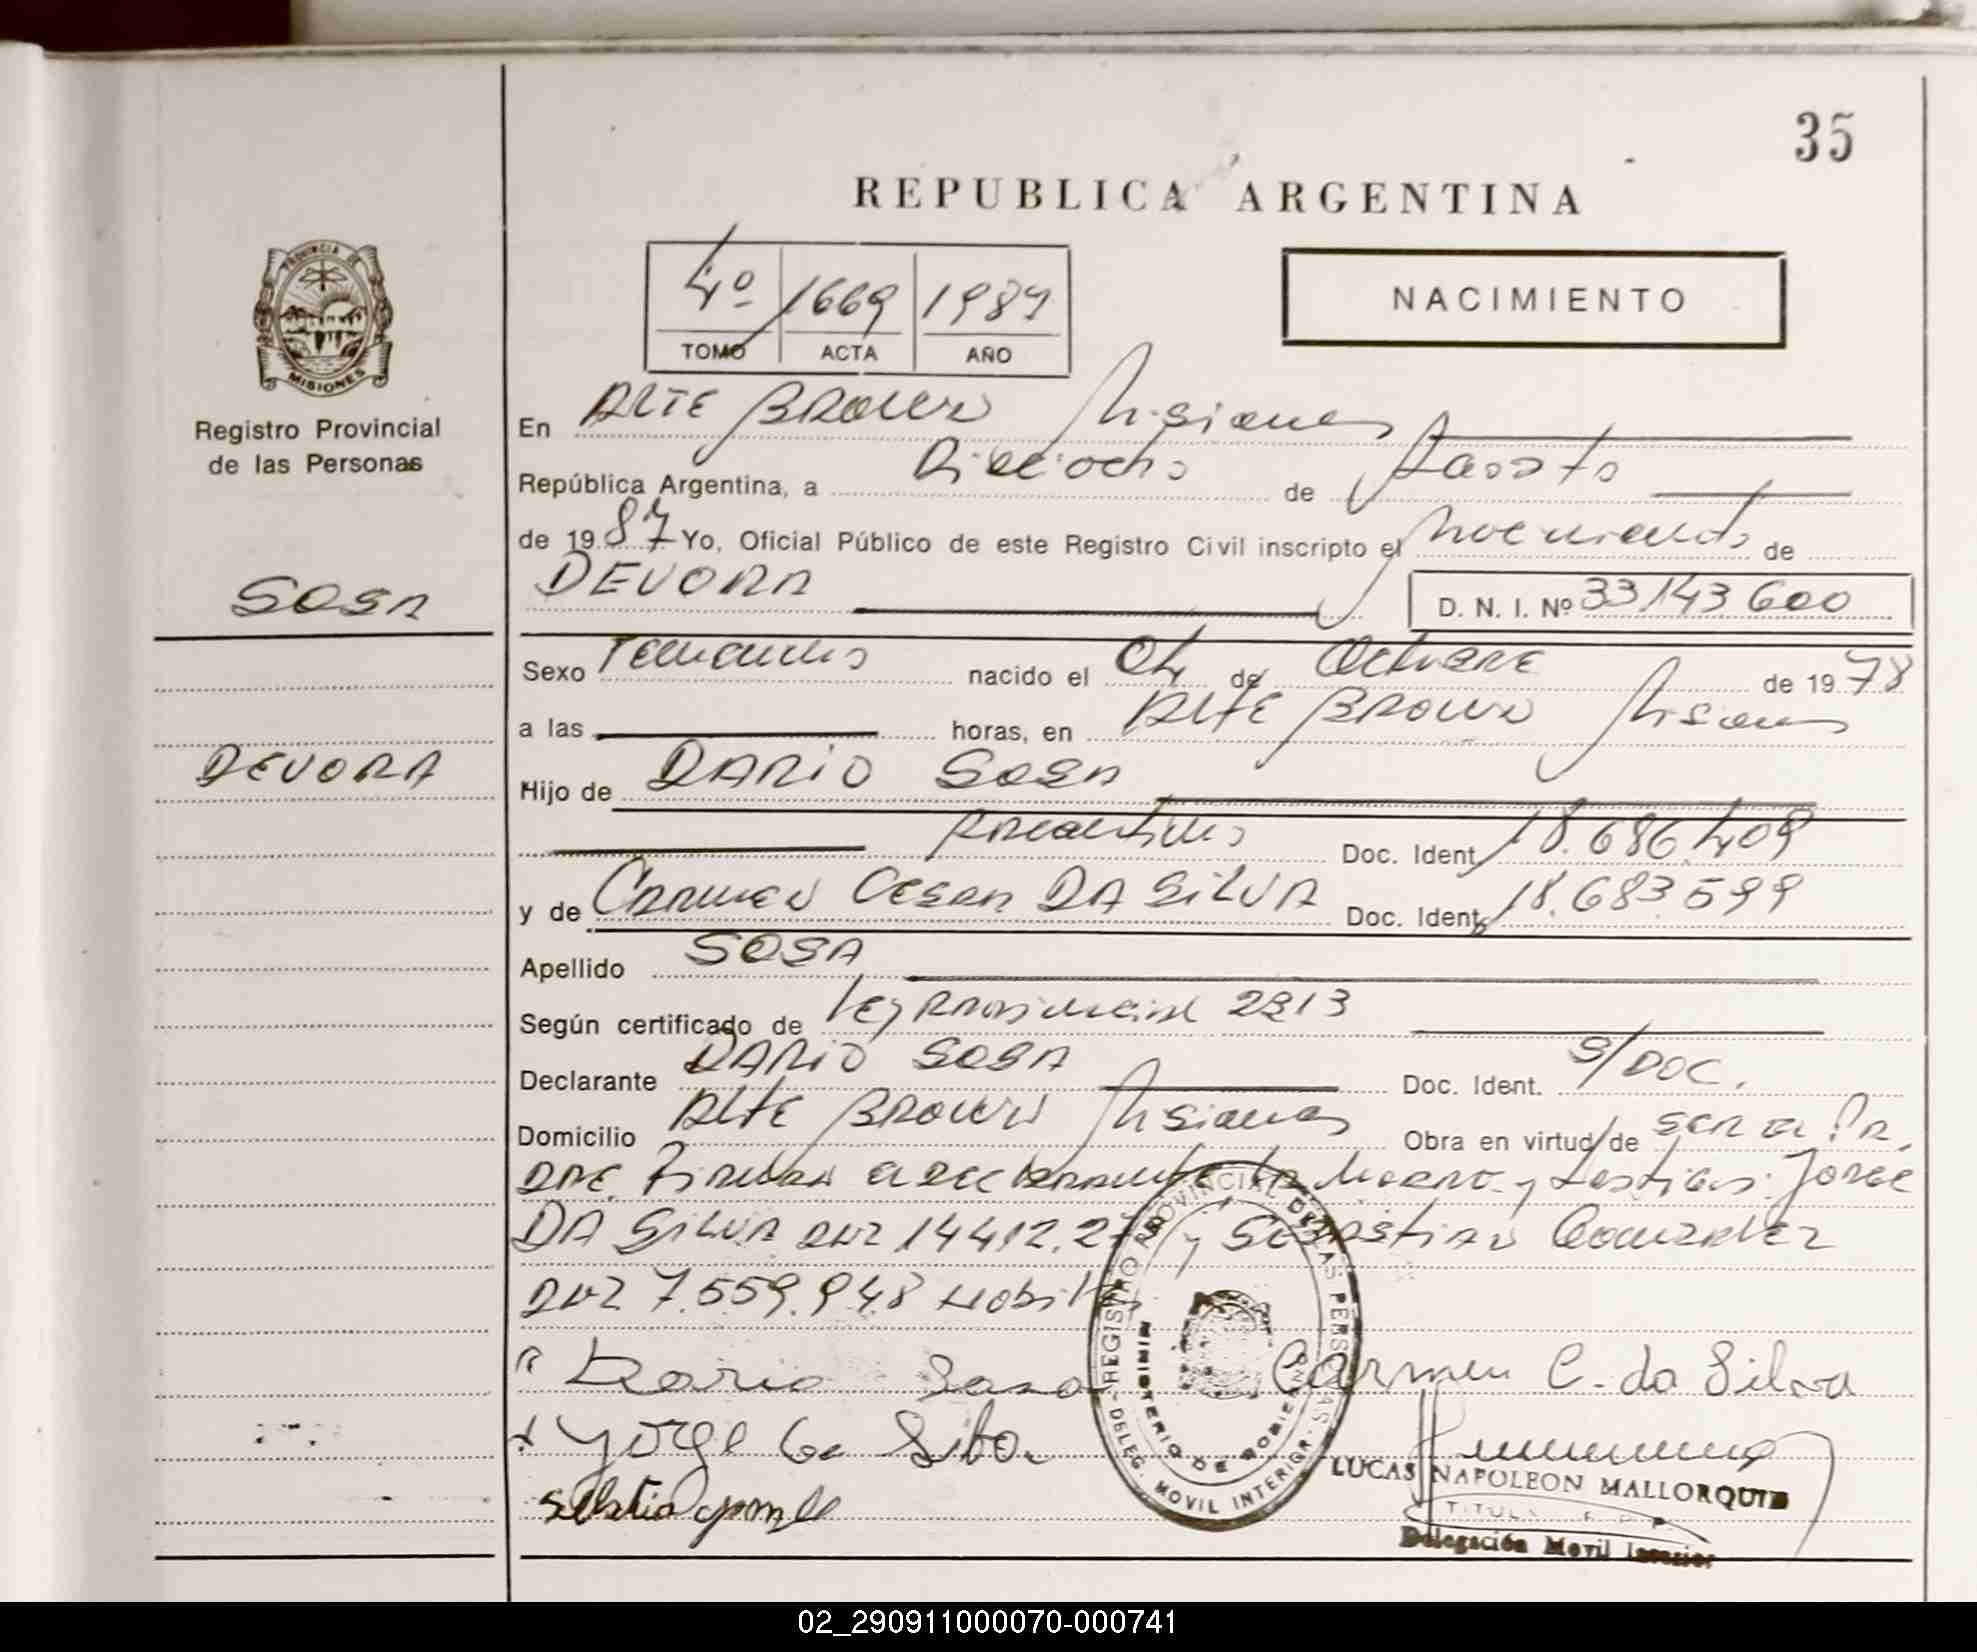 35
REPUBLICA ARGENTINA
4º 1669 1987
TOMO ACTA AÑO
NACIMIENTO
PROVINCIA DE
MISIONES
Registro Provincial
de las Personas
En ALTE BROWN Misiones
República Argentina, a Dieciocho de Agosto
de 1987 Yo, Oficial Público de este Registro Civil inscripto el Nacimiento de
SOSA
DEVORA D. N. I. Nº 33.143.600
Sexo Femenino nacido el 04 de Octubre de 1978
a las horas, en Alte Brown Misiones
DEVORA
Hijo de DARIO SOSA
Argentino Doc. Ident. 18.686.409
y de Carmen Cesar DA SILVA Doc. Ident. 18.683.599
Apellido SOSA
Según certificado de Ley Provincial 2813
Declarante DARIO SOSA Doc. Ident. S/DOC.
Domicilio Alte Brown Misiones Obra en virtud de ser el Pa
dre. Firman el declarante, la Madre y testigos: Jorge
DA SILVA DNI 14.412.2 y Sebastian Gonzalez
DNI 7.559.948
Dario Sosa Carmen C. da Silva
REGISTRO PROVINCIAL DE LAS PERSONAS
MINISTERIO DE GOBIERNO
DELEG. MOVIL INTERIOR
LUCAS NAPOLEON MALLORQUIN
Delegación Movil Interior
02_290911000070-000741